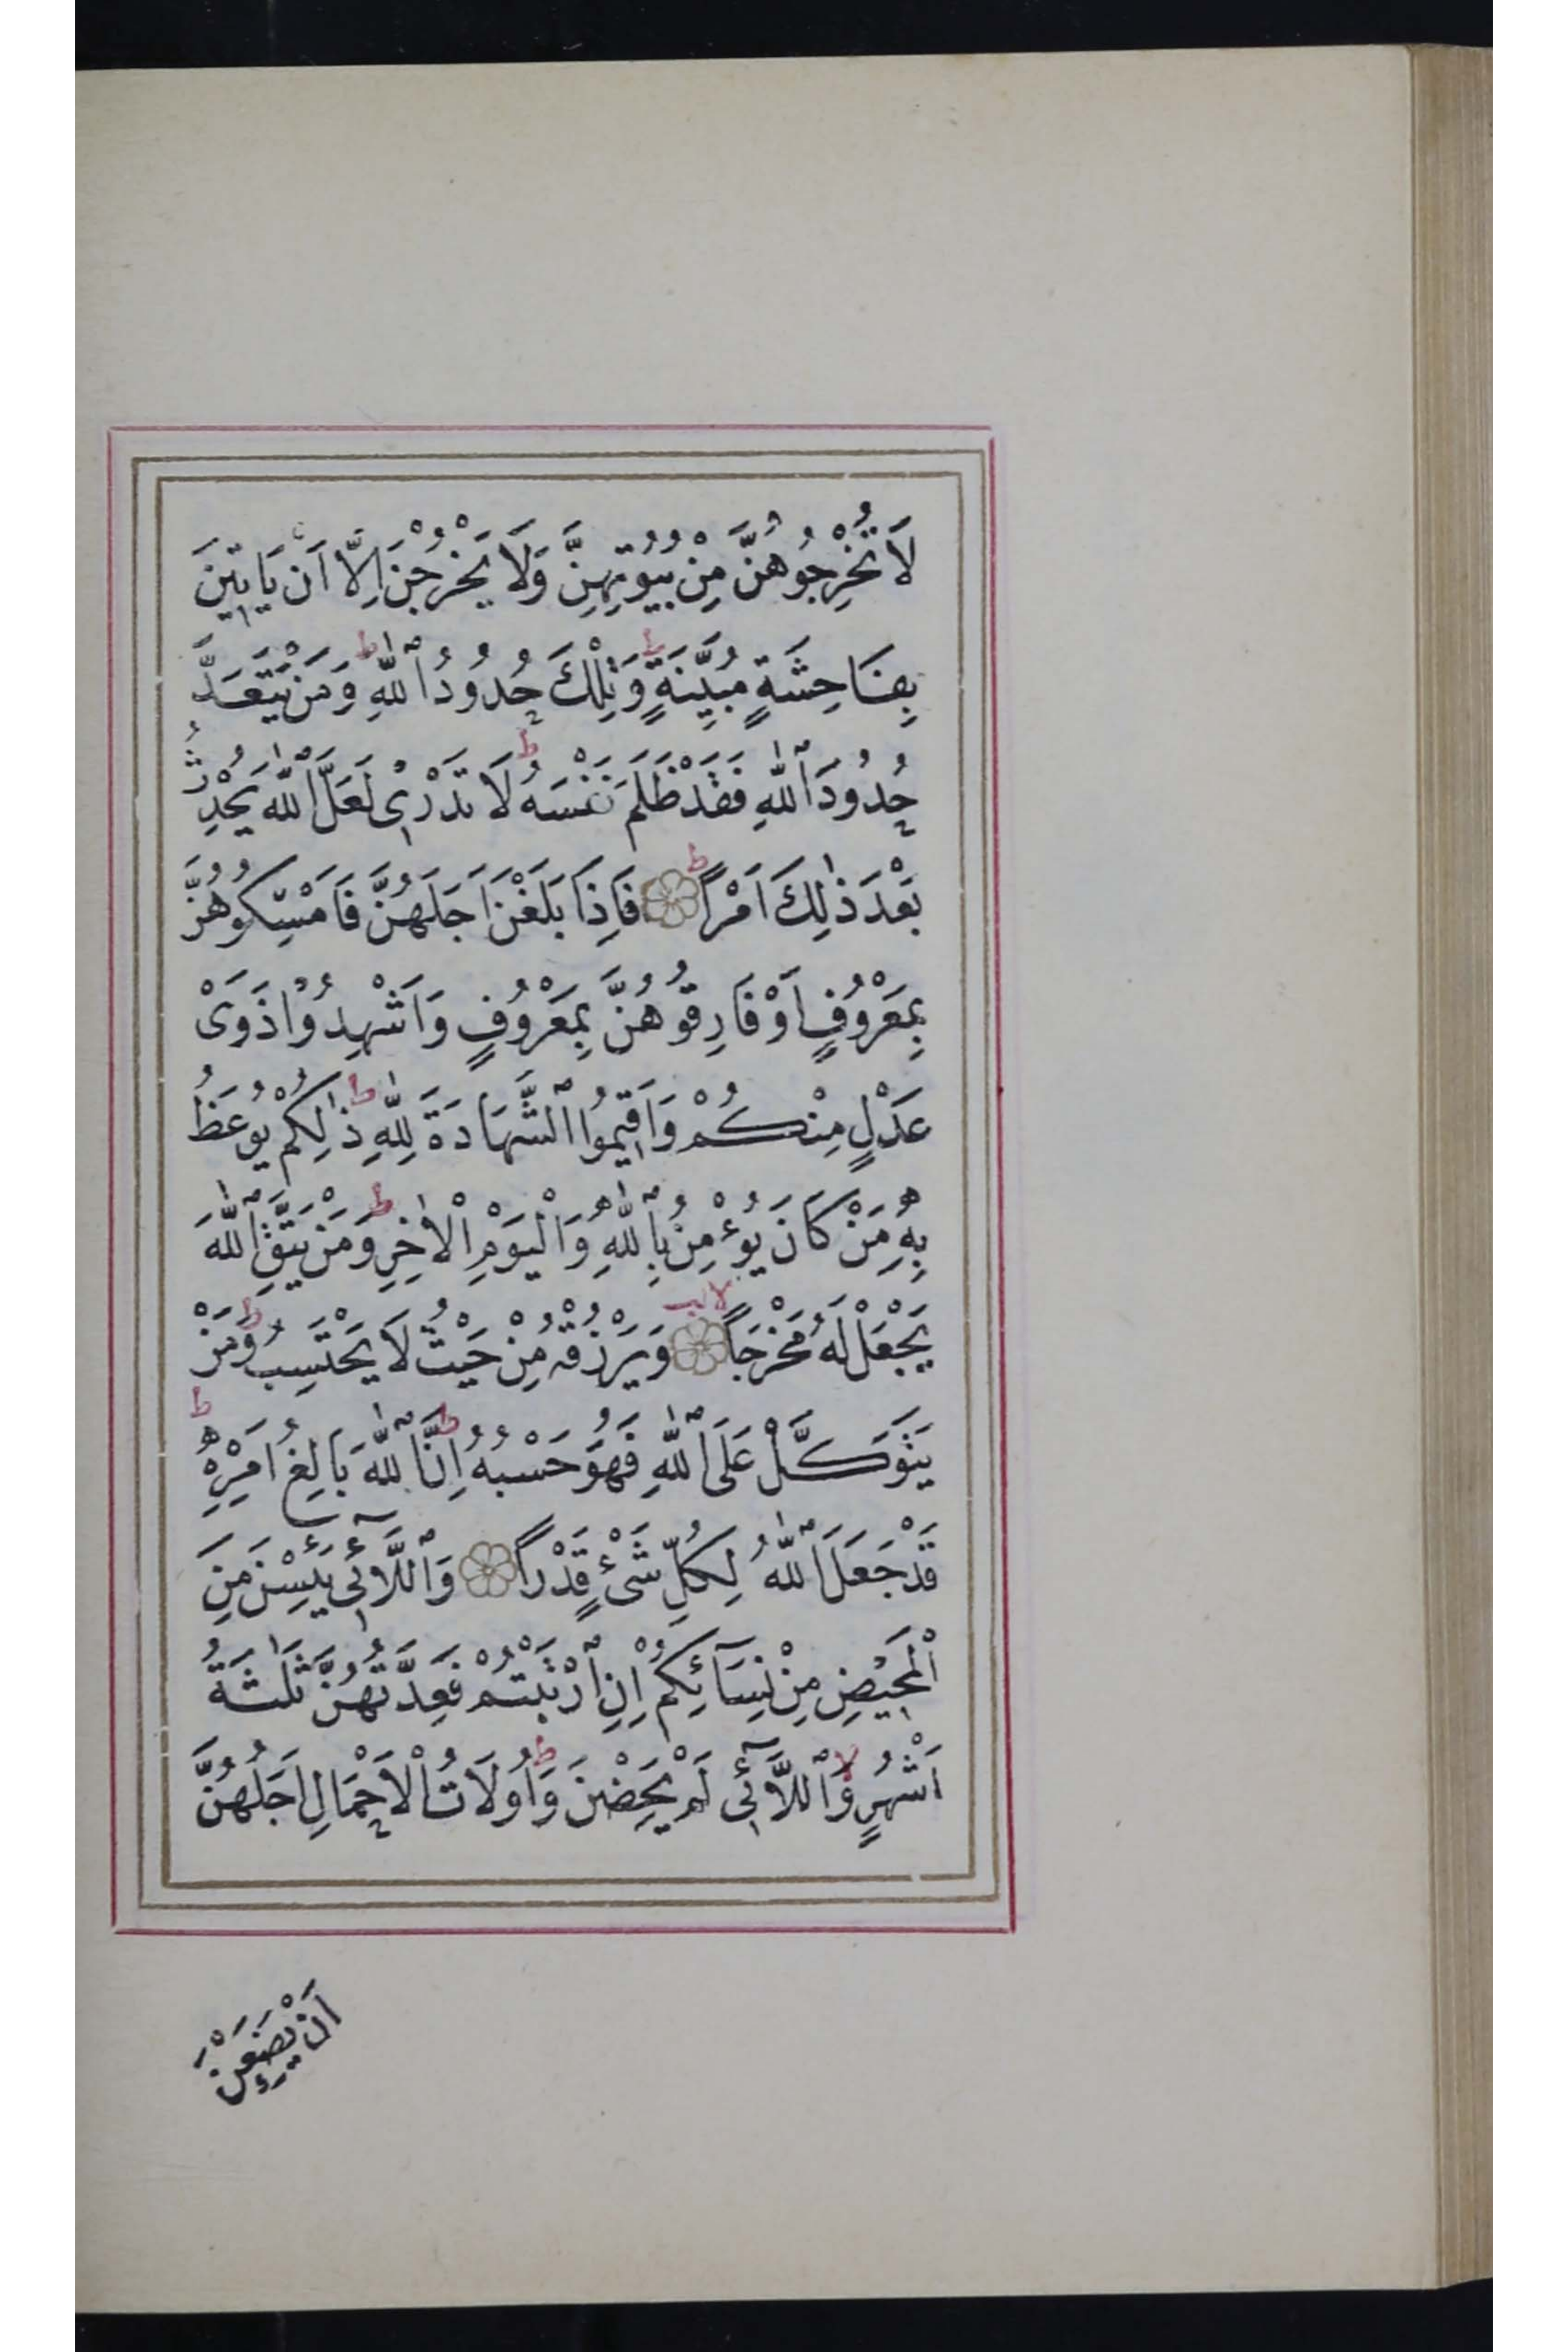 لَا تُخْرِجُوهُنَّ مِنْ بُيُوتِهِنَّ وَلَا يَخْرُجْنَ اِلَّا اَنْ يَاْتِينَ
بِفَاحِشَةٍ مُبَيِّنَةٍ ط وَتِلْكَ حُدُودُ ٱللّٰهِ ط وَمَنْ يَتَعَدَّ
حُدُودَ ٱللّٰهِ فَقَدْ ظَلَمَ نَفْسَهُ ط لَا تَدْرِى لَعَلَّ ٱللّٰهَ يُحْدِثُ
بَعْدَ ذٰلِكَ اَمْرًا ط فَاِذَا بَلَغْنَ اَجَلَهُنَّ فَاَمْسِكُوهُنَّ
بِمَعْرُوفٍ اَوْ فَارِقُوهُنَّ بِمَعْرُوفٍ وَاَشْهِدُوا ذَوَىْ
عَدْلٍ مِنْكُمْ وَاَقِيمُوا ٱلشَّهَادَةَ لِلّٰهِ ط ذٰلِكُمْ يُوعَظُ
بِهِ مَنْ كَانَ يُؤْمِنُ بِٱللّٰهِ وَٱلْيَوْمِ ٱلْاٰخِرِ ط وَمَنْ يَتَّقِ ٱللّٰهَ
يَجْعَلْ لَهُ مَخْرَجًا لا لب وَيَرْزُقْهُ مِنْ حَيْثُ لَا يَحْتَسِبُ ط وَمَنْ
يَتَوَكَّلْ عَلَى ٱللّٰهِ فَهُوَ حَسْبُهُ ط اِنَّ ٱللّٰهَ بَالِغُ اَمْرِهِ ط
قَدْ جَعَلَ ٱللّٰهُ لِكُلِّ شَىْءٍ قَدْرًا وَٱللَّآئِى يَئِسْنَ مِنَ
ٱلْمَحِيضِ مِنْ نِسَآئِكُمْ اِنِ ٱرْتَبْتُمْ فَعِدَّتُهُنَّ ثَلٰثَةُ
اَشْهُرٍ لا وَٱللَّآئِى لَمْ يَحِضْنَ ط وَاُولَاتُ ٱلْاَحْمَالِ اَجَلُهُنَّ
اَنْ يَضَعْنَ